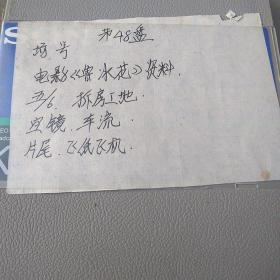 编号 第48盘
电影《鲁冰花》资料.
5/6. 拆房工地.
空镜. 车流.
片尾. 飞纸飞机.